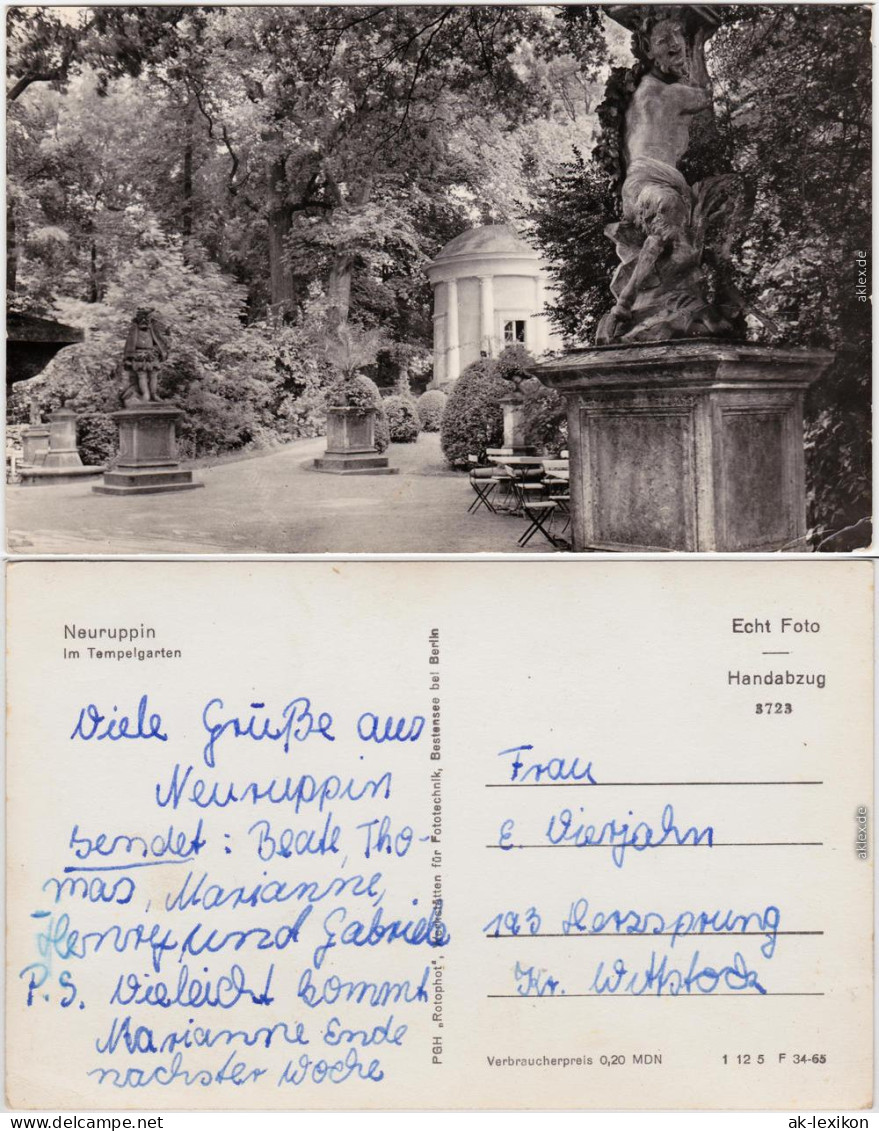 aklex.de
Neuruppin
Im Tempelgarten
Viele Grüße aus
Neuruppin
sendet: Beate, Tho-
mas, Marianne,
Henry und Gabriele
P.S. Vieleicht kommt
Marianne Ende
nächster Woche
PGH „Rotophot", Werkstätten für Fototechnik, Bestensee bei Berlin
Echt Foto
Handabzug
3723
Frau
E. Vierjahn
193 Herzsprung
Kr. Wittstock
Verbraucherpreis 0,20 MDN
1 12 5 F 34-65
aklex.de
www.ansichtskarten-lexikon.de
ak-lexikon